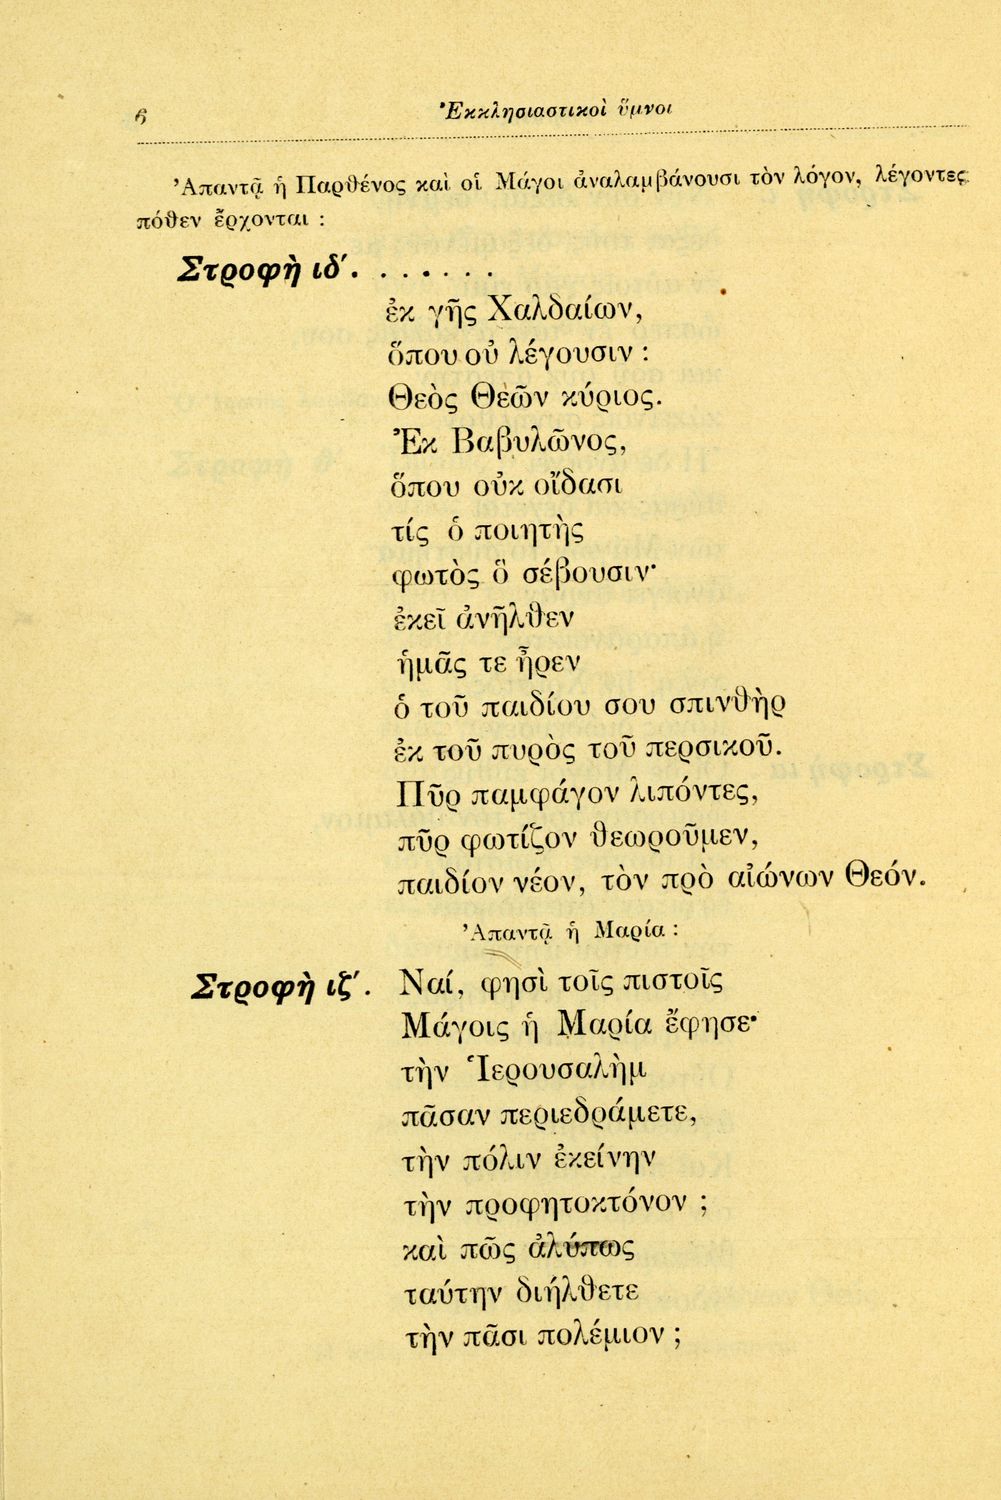 6
Ἐκκλησιαστικοὶ ὕμνοι
Ἀπαντᾷ ἡ Παρθένος καὶ οἱ Μάγοι ἀναλαμβάνουσι τὸν λόγον, λέγοντες
πόθεν ἔρχονται :
Στροφὴ ιδ΄. . . . . . .
ἐκ γῆς Χαλδαίων,
ὅπου οὐ λέγουσιν :
Θεὸς Θεῶν κύριος.
Ἐκ Βαβυλῶνος,
ὅπου οὐκ οἴδασι
τίς ὁ ποιητὴς
φωτὸς ὃ σέβουσιν·
ἐκεῖ ἀνῆλθεν
ἡμᾶς τε ἦρεν
ὁ τοῦ παιδίου σου σπινθὴρ
ἐκ τοῦ πυρὸς τοῦ περσικοῦ.
Πῦρ παμφάγον λιπόντες,
πῦρ φωτίζον θεωροῦμεν,
παιδίον νέον, τὸν πρὸ αἰώνων Θεόν.
Ἀπαντᾷ ἡ Μαρία :
Στροφὴ ιζ΄. Ναί, φησὶ τοῖς πιστοῖς
Μάγοις ἡ Μαρία ἔφησε·
τὴν Ἱερουσαλὴμ
πᾶσαν περιεδράμετε,
τὴν πόλιν ἐκείνην
τὴν προφητοκτόνον ;
καὶ πῶς ἀλύπως
ταύτην διήλθετε
τὴν πᾶσι πολέμιον ;